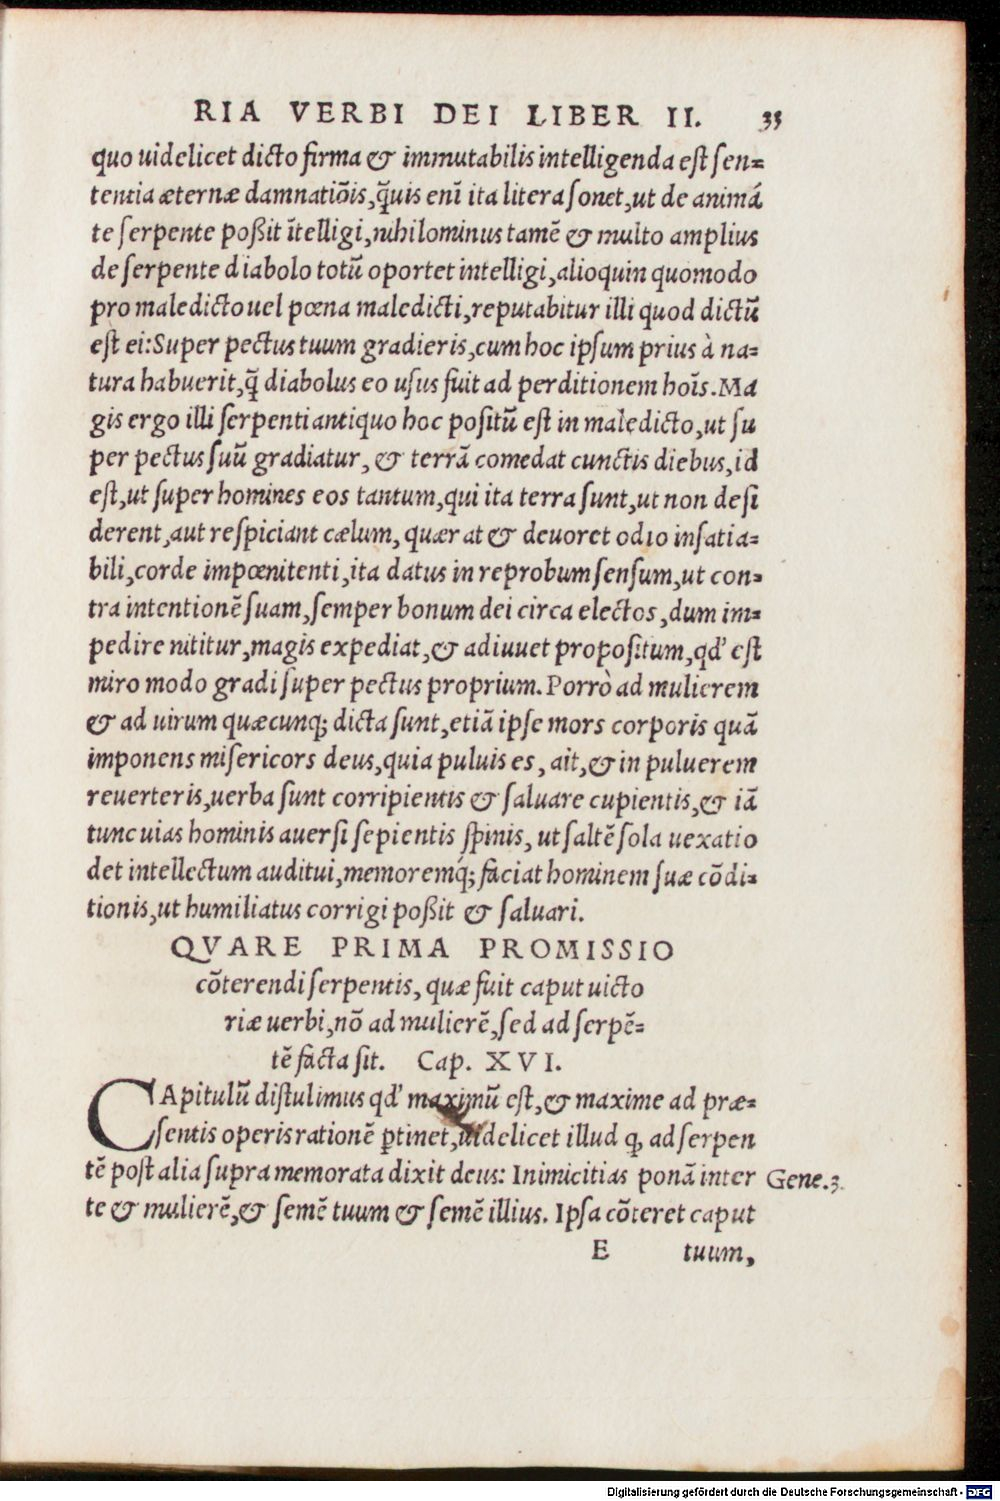 RIA VERBI DEI LIBER II. 33
quo uidelicet dicto firma & immutabilis intelligenda est sen=
tentia æternæ damnatiõis, q̃uis enĩ ita litera sonet, ut de animã
te serpente poßit ĩtelligi, nihilominus tamẽ & multo amplius
de serpente diabolo totũ oportet intelligi, alioquin quomodo
pro maledicto uel pœna maledicti, reputabitur illi quod dictũ
est ei: Super pectus tuum gradieris, cum hoc ipsum prius à na=
tura habuerit, q̃ diabolus eo usus fuit ad perditionem hoĩs. Ma
gis ergo illi serpenti antiquo hoc positũ est in maledicto, ut su
per pectus suũ gradiatur, & terrã comedat cunctis diebus, id
est, ut super homines eos tantum, qui ita terra sunt, ut non desi
derent, aut respiciant cælum, quærat & deuoret odio insatia=
bili, corde impœnitenti, ita datus in reprobum sensum, ut con=
tra intentionẽ suam, semper bonum dei circa electos, dum im=
pedire nititur, magis expediat, & adiuuet propositum, qd' est
miro modo gradi super pectus proprium. Porrò ad mulierem
& ad uirum quæcunq; dicta sunt, etiã ipse mors corporis quã
imponens misericors deus, quia puluis es, ait, & in puluerem
reuerteris, uerba sunt corripientis & saluare cupientis, & iã
tunc uias hominis auersi sepientis spinis, ut saltẽ sola uexatio
det intellectum auditui, memoremq́; faciat hominem suæ cõdi=
tionis, ut humiliatus corrigi poßit & saluari.
QVARE PRIMA PROMISSIO
cõterendi serpentis, quæ fuit caput uicto
riæ uerbi, nõ ad mulierẽ, sed ad serpẽ=
tẽ facta sit. Cap. XVI.
CApitulũ distulimus qd' maximũ est, & maxime ad præ=
sentis operis rationẽ ꝑtinet, uidelicet illud q, ad serpen
tẽ post alia supra memorata dixit deus: Inimicitias ponã inter
Gene.3.
te & mulierẽ, & semẽ tuum & semẽ illius. Ipsa cõteret caput
E tuum,
Digitalisierung gefördert durch die Deutsche Forschungsgemeinschaft - DFG